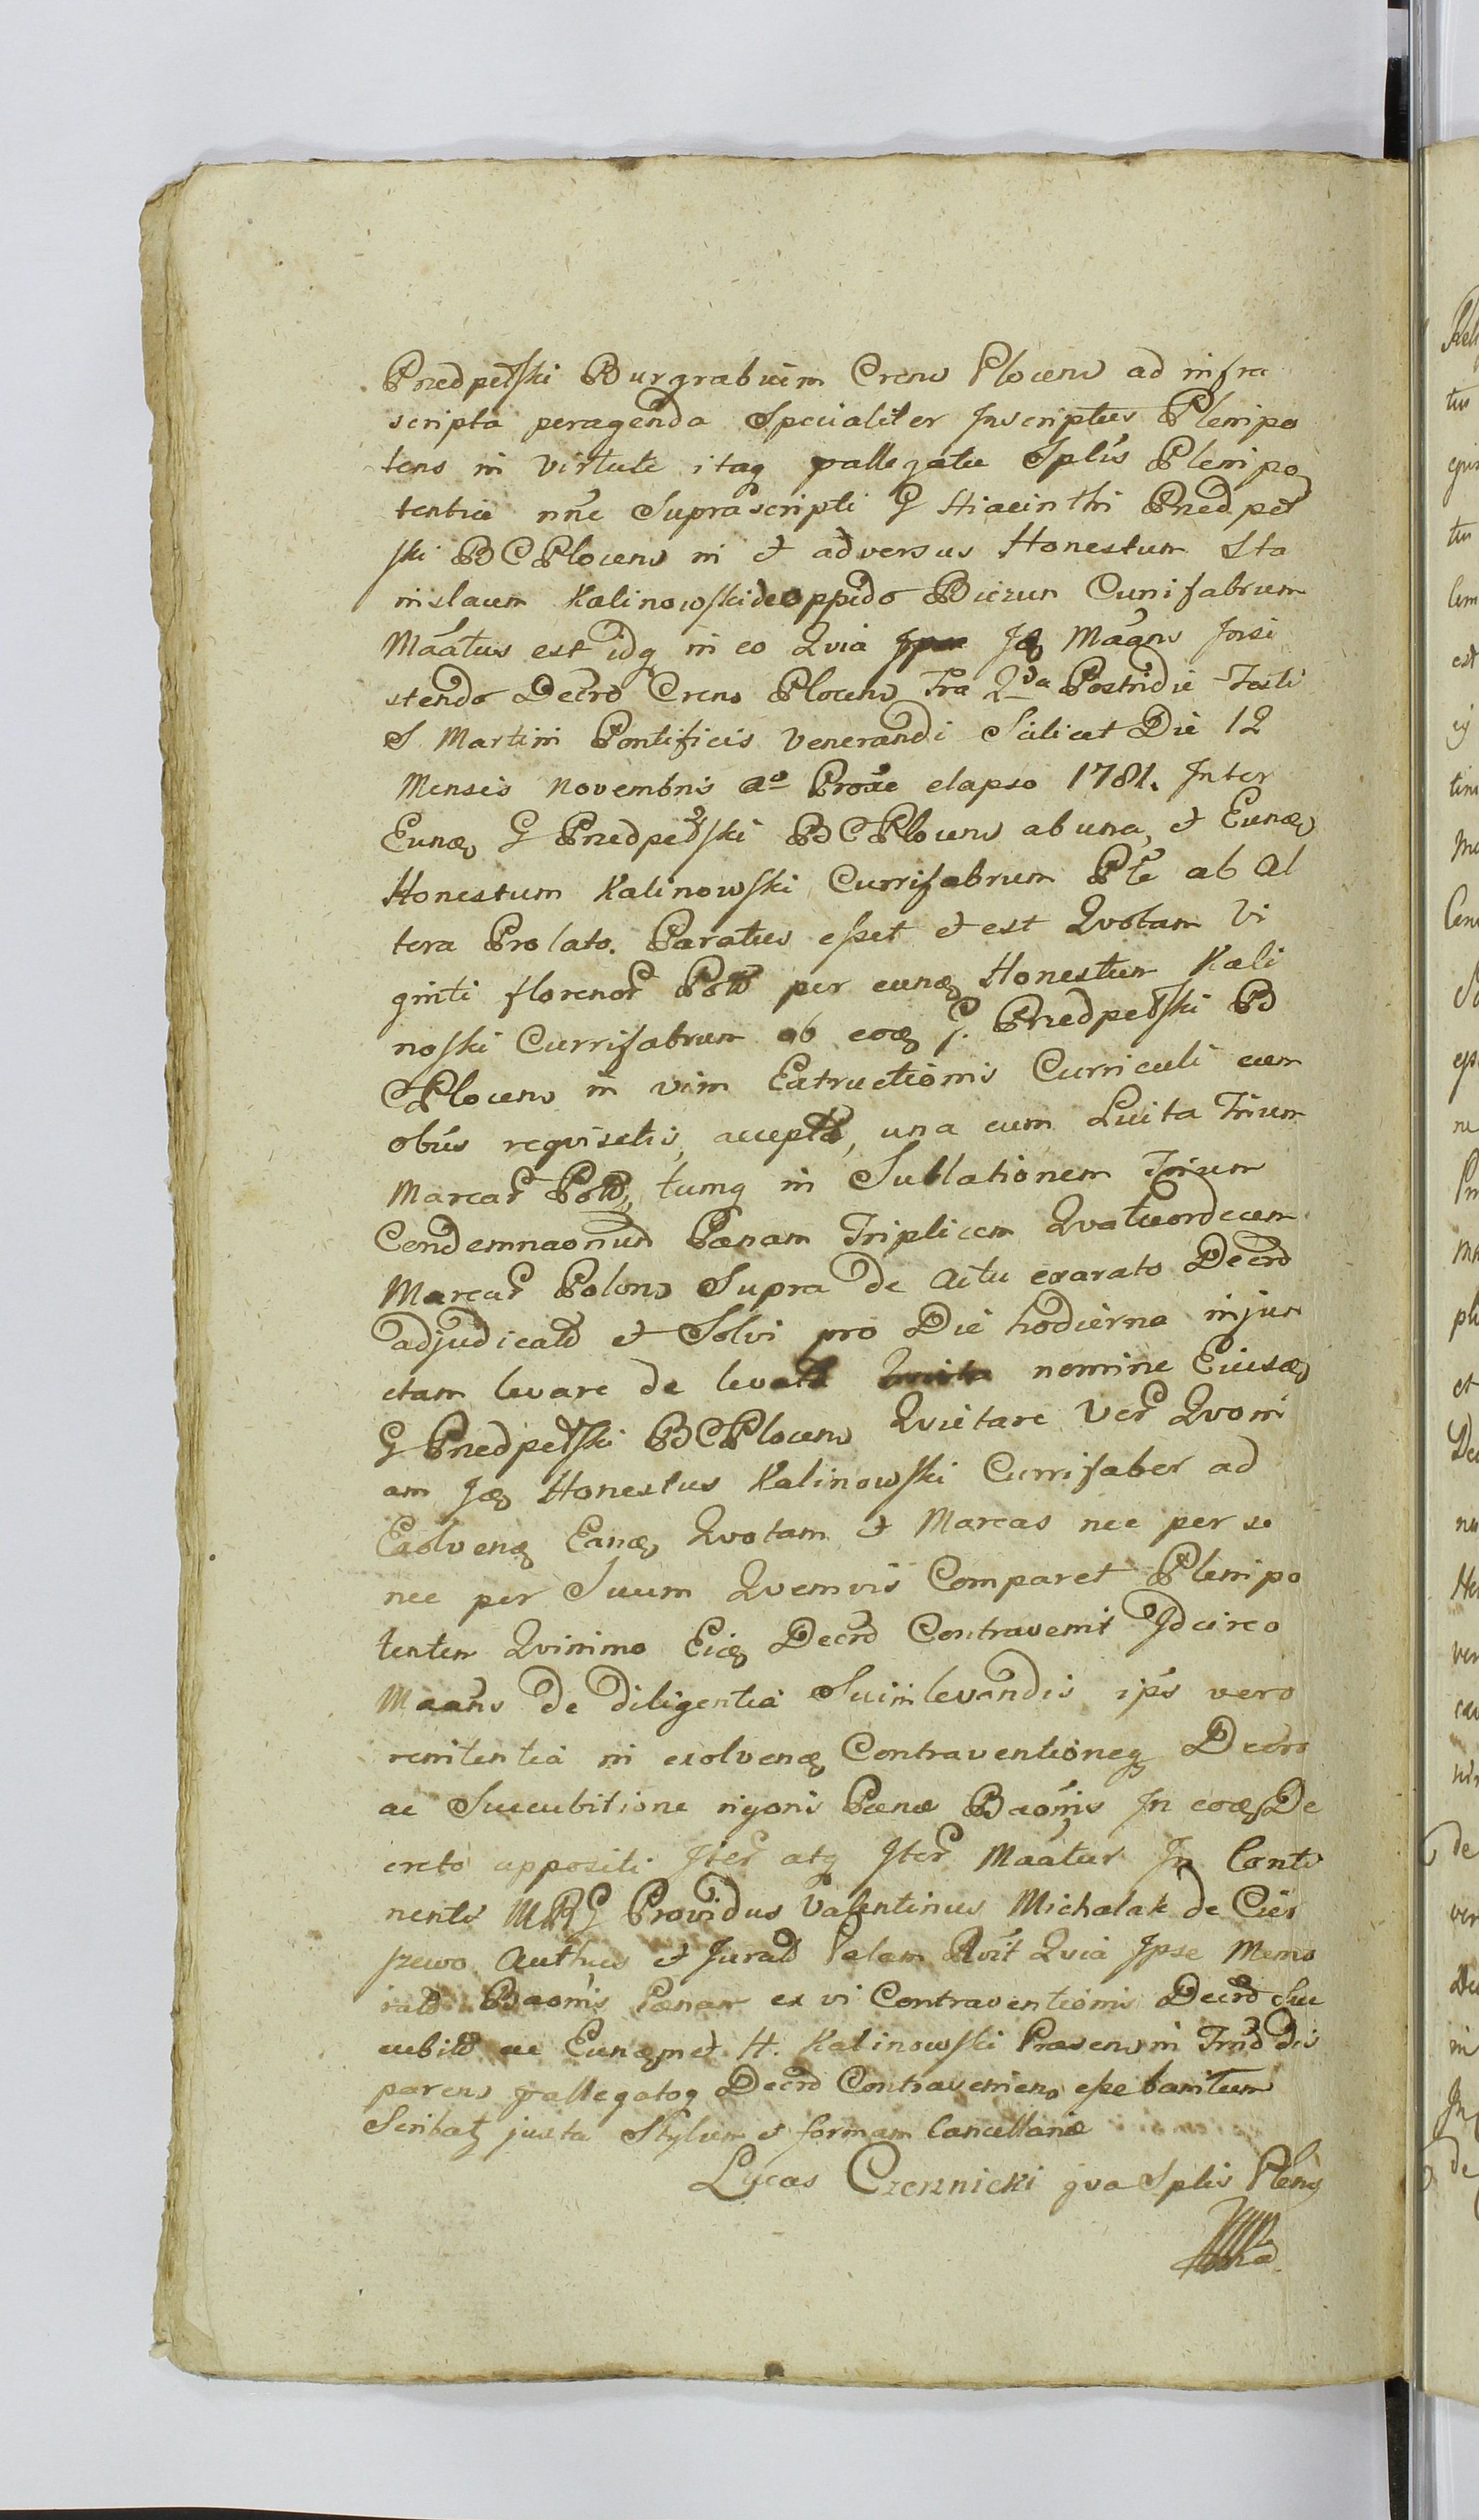 Przedpełski Burgrabium Crens Plocens ad infra
scripta peragenda Specialiter Inscriptus Plenipo
tens in virtute itaq pallegatæ Splis Plenipo
tentiæ nne Suprascripti G Hiacinthi Przedpeł
ski B C Plocens in et adversus Honestum Sta
nislaum Kalinowski de oppido Biezun Currifabrum
Maatus est idq in eo Qvia Idē Maans Insi
stendo Decro Crens Plocens Fra 2da Postridie Festi
S Martini Pontificis Venerandi Scilicet Die 12
Mensis Novembris Ao Proxe elapso 1781. Inter
Eundē G Przedpełski B C Plocens ab una, et Eundē
Honestum Kalinowski Currifabrum Pte ab Al
tera Prolato. Paratus esset et est Qvotam Vi
ginti florenor Poll per eundē Honestum Kali
noski Currifabrum ab eodē G. Przedpełski B
C Plocens in vim Extructionis Curriculi cum
obus reqvisitis, accepta, una cum Luita Trium
Marcar Poll, tumq in Sublationem Trium
Condemnaonum Pænam Triplicem Qvatuordecem
Marcar Polons Supra de Actu exarato Decro
adjudicatā et Solvi pro Die hodierna injun
ctam levare de levata nomine Eiusdē
G Przedpełski B C Plocens Qvietare Ver Qvoni
am Idē Honestus Kalinowski Currifaber ad
Exolvendē Eandē Qvotam et Marcas nec per se
nec per Suum Qvemvis Comparet Plenipo
tentem Qvinimo Eidē Decro Contravenit Idcirco
Maans de diligentia Sui in levandis ips vero
renitentia in exolvendē Contraventioneq Decro
ac Succubitione rigoris Pænæ Baonis In eodē De
creto appositi Iter atq Iter Maatur In Conti
nenti MRG Providus Valentinus Michalak de Cies
szewo Authus et Jurat Palam Rvit Qvia Ipse Memo
rat Baonis Pænam ex vi Contraventionis Decro Suc
cubit ac Eundēmet H. Kalinowski Præsens in Trno dis
parens pallegatoq Decro Contraveniens esse banitum
Scribatz juxta Stylum et formam Cancellariæ
Lucas Czernicki qva Splis Plens